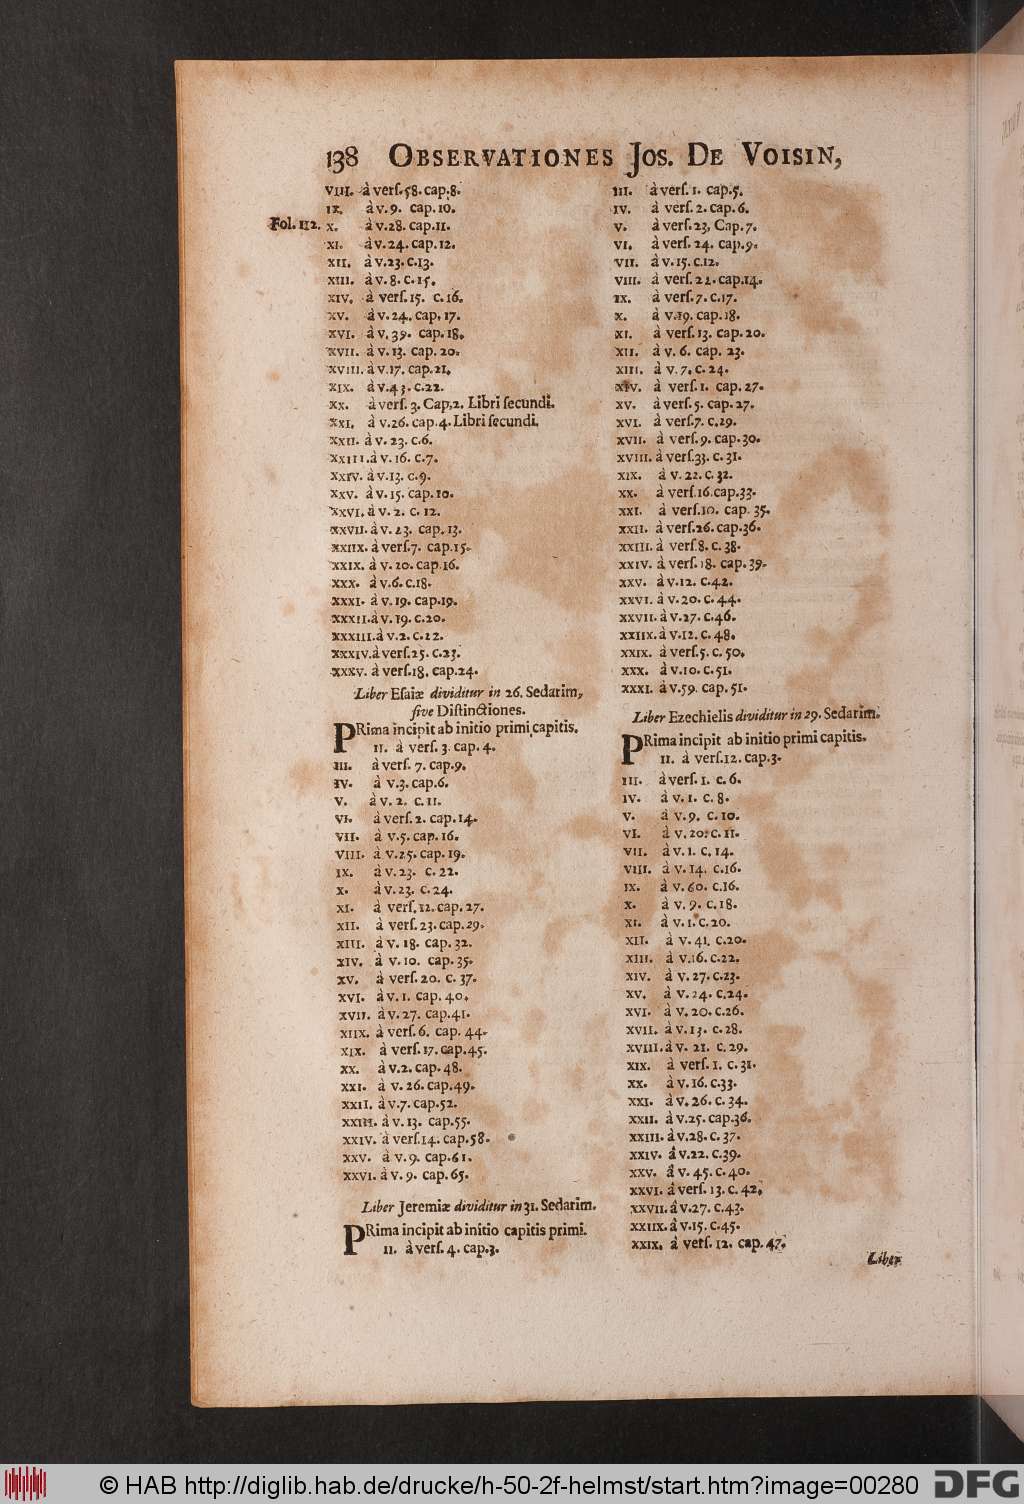 138 OBSERVATIONES JOS. DE VOISIN,
VIII. à vers. 58. cap. 8.
IX. à v. 9. cap. 10.
Fol. 112. X. à v. 28. cap. 11.
XI. à v. 24. cap. 12.
XII. à v. 23. c. 13.
XIII. à v. 8. c. 15.
XIV. à vers. 15. c. 16.
XV. à v. 24. cap. 17.
XVI. à v. 39. cap. 18.
XVII. à v. 13. cap. 20.
XVIII. à v. 17. cap. 21.
XIX. à v. 43. c. 22.
XX. à vers. 3. Cap. 2. Libri secundi.
XXI. à v. 26. cap. 4. Libri secundi.
XXII. à v. 23. c. 6.
XXIII. à v. 16. c. 7.
XXIV. à v. 13. c. 9.
XXV. à v. 15. cap. 10.
XXVI. à v. 2. c. 12.
XXVII. à v. 23. cap. 13.
XXIIX. à vers. 7. cap. 15.
XXIX. à v. 20. cap. 16.
XXX. à v. 6. c. 18.
XXXI. à v. 19. cap. 19.
XXXII. à v. 19. c. 20.
XXXIII. à v. 2. c. 22.
XXXIV. à vers. 25. c. 23.
XXXV. à vers. 18. cap. 24.
Liber Esaiæ dividitur in 26. Sedarim,
sive Distinctiones.
PRima incipit ab initio primi capitis.
II. à vers. 3. cap. 4.
III. à vers. 7. cap. 9.
IV. à v. 3. cap. 6.
V. à v. 2. c. 11.
VI. à vers. 2. cap. 14.
VII. à v. 5. cap. 16.
VIII. à v. 25. cap. 19.
IX. à v. 23. c. 22.
X. à v. 23. c. 24.
XI. à vers. 12. cap. 27.
XII. à vers. 23. cap. 29.
XIII. à v. 18. cap. 32.
XIV. à v. 10. cap. 35.
XV. à vers. 20. c. 37.
XVI. à v. 1. cap. 40.
XVII. à v. 27. cap. 41.
XIIX. à vers. 6. cap. 44.
XIX. à vers. 17. cap. 45.
XX. à v. 2. cap. 48.
XXI. à v. 26. cap. 49.
XXII. à v. 7. cap. 52.
XXIII. à v. 13. cap. 55.
XXIV. à vers. 14. cap. 58.
XXV. à v. 9. cap. 61.
XXVI. à v. 9. cap. 65.
Liber Jeremiæ dividitur in 31. Sedarim.
PRima incipit ab initio capitis primi.
II. à vers. 4. cap. 3.
III. à vers. 1. cap. 5.
IV. à vers. 2. cap. 6.
V. à vers. 23. Cap. 7.
VI. à vers. 24. cap. 9.
VII. à v. 15. c. 12.
VIII. à vers. 22. cap. 14.
IX. à vers. 7. c. 17.
X. à v. 19. cap. 18.
XI. à vers. 13. cap. 20.
XII. à v. 6. cap. 23.
XIII. à v. 7. c. 24.
XIV. à vers. 1. cap. 27.
XV. à vers. 5. cap. 27.
XVI. à vers. 7. c. 29.
XVII. à vers. 9. cap. 30.
XVIII. à vers. 33. c. 31.
XIX. à v. 22. c. 32.
XX. à vers. 16. cap. 33.
XXI. à vers. 10. cap. 35.
XXII. à vers. 26. cap. 36.
XXIII. à vers. 8. c. 38.
XXIV. à vers. 18. cap. 39.
XXV. à v. 12. c. 42.
XXVI. à v. 20. c. 44.
XXVII. à v. 27. c. 46.
XXIIX. à v. 12. c. 48.
XXIX. à vers. 5. c. 50.
XXX. à v. 10. c. 51.
XXXI. à v. 59. cap. 51.
Liber Ezechielis dividitur in 29. Sedarim.
PRima incipit ab initio primi capitis.
II. à vers. 12. cap. 3.
III. à vers. 1. c. 6.
IV. à v. 1. c. 8.
V. à v. 9. c. 10.
VI. à v. 20. c. 11.
VII. à v. 1. c. 14.
VIII. à v. 14. c. 16.
IX. à v. 60. c. 16.
X. à v. 9. c. 18.
XI. à v. 1. c. 20.
XII. à v. 41. c. 20.
XIII. à v. 16. c. 22.
XIV. à v. 27. c. 23.
XV. à v. 24. c. 24.
XVI. à v. 20. c. 26.
XVII. à v. 13. c. 28.
XVIII. à v. 21. c. 29.
XIX. à vers. 1. c. 31.
XX. à v. 16. c. 33.
XXI. à v. 26. c. 34.
XXII. à v. 25. cap. 36.
XXIII. à v. 28. c. 37.
XXIV. à v. 22. c. 39.
XXV. à v. 45. c. 40.
XXVI. à vers. 13. c. 42.
XXVII. à v. 27. c. 43.
XXIIX. à v. 15. c. 45.
XXIX. à vers. 12. cap. 47.
Liber
© HAB http://diglib.hab.de/drucke/h-50-2f-helmst/start.htm?image=00280 DFG